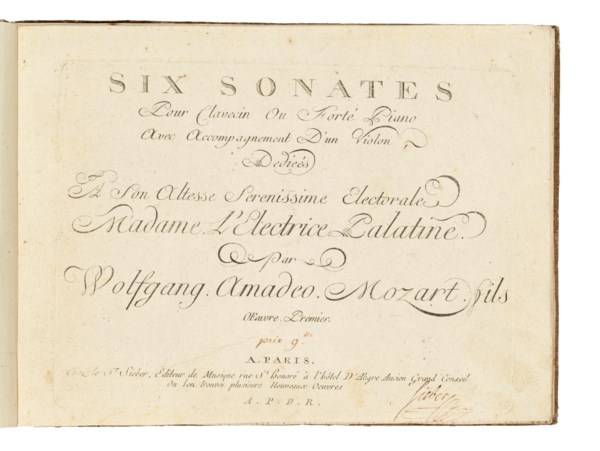 SIX SONATES
Pour Clavecin Ou Forté Piano
Avec Accompagnement D'un Violon
Dediées
A Son Altesse Serenissime Electorale
Madame L'Electrice Palatine.
Par
Wolfgang. Amadeo. Mozart. fils
Œuvre. Premier.
prix 9.
A. PARIS.
Chez le Sr. Sieber, Editeur de Musique rue St. honoré à l'hôtel D'Aligre Ancien Grand Conseil
Ou l'on trouve plusieurs Nouveaux Oeuvres
A. P. D. R.
Sieber